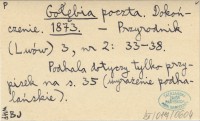 P
Gołębia poczta. Dokoń-
czenie. 1873. – Przyrodnik
(Lwów) 3, nr 2: 33-38.
Podhala dotyczy tylko przy-
pisek na s. 35 (wyrażenie podha-
lańskie).
BJ